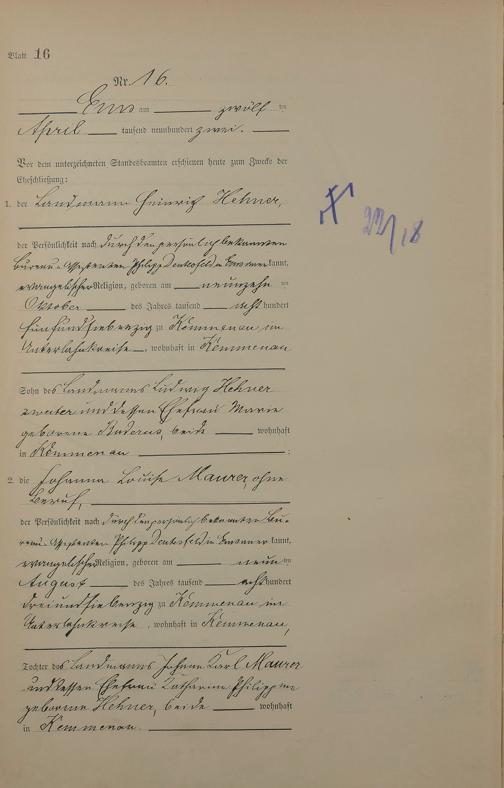 Blatt 16
Nr. 16.
Ems am zwölf ten
April tausend neunhundert zwei.
Vor dem unterzeichneten Standesbeamten erschienen heute zum Zwecke der
Eheschließung:
1. der Landmann Heinrich Hehner,
der Persönlichkeit nach durch den persönlich bekannten
Bureau-Assistenten Philipp in kannt,
evangelischer Religion, geboren am neunzehn ten
Oktober des Jahres tausend acht hundert
fünfundsiebenzig zu Kemmenau im
Unterlahnkreise, wohnhaft in Kemmenau
Sohn des Landmanns Ludwig Hehner
zweiter und dessen Ehefrau Marie
geborene beide wohnhaft
in Kemmenau ;
2. die Johanna Louise Maurer, ohne
Beruf,
der Persönlichkeit nach durch den persönlich bekannten Bu-
reau-Assistenten Philipp in kannt,
evangelischer Religion, geboren am neun ten
August des Jahres tausend acht hundert
dreiundsiebenzig zu Kemmenau im
Unterlahnkreise, wohnhaft in Kemmenau,
Tochter des Landmanns Johann Karl Maurer
und dessen Ehefrau Katharine Philippine
geborene Hehner, beide wohnhaft
in Kemmenau.